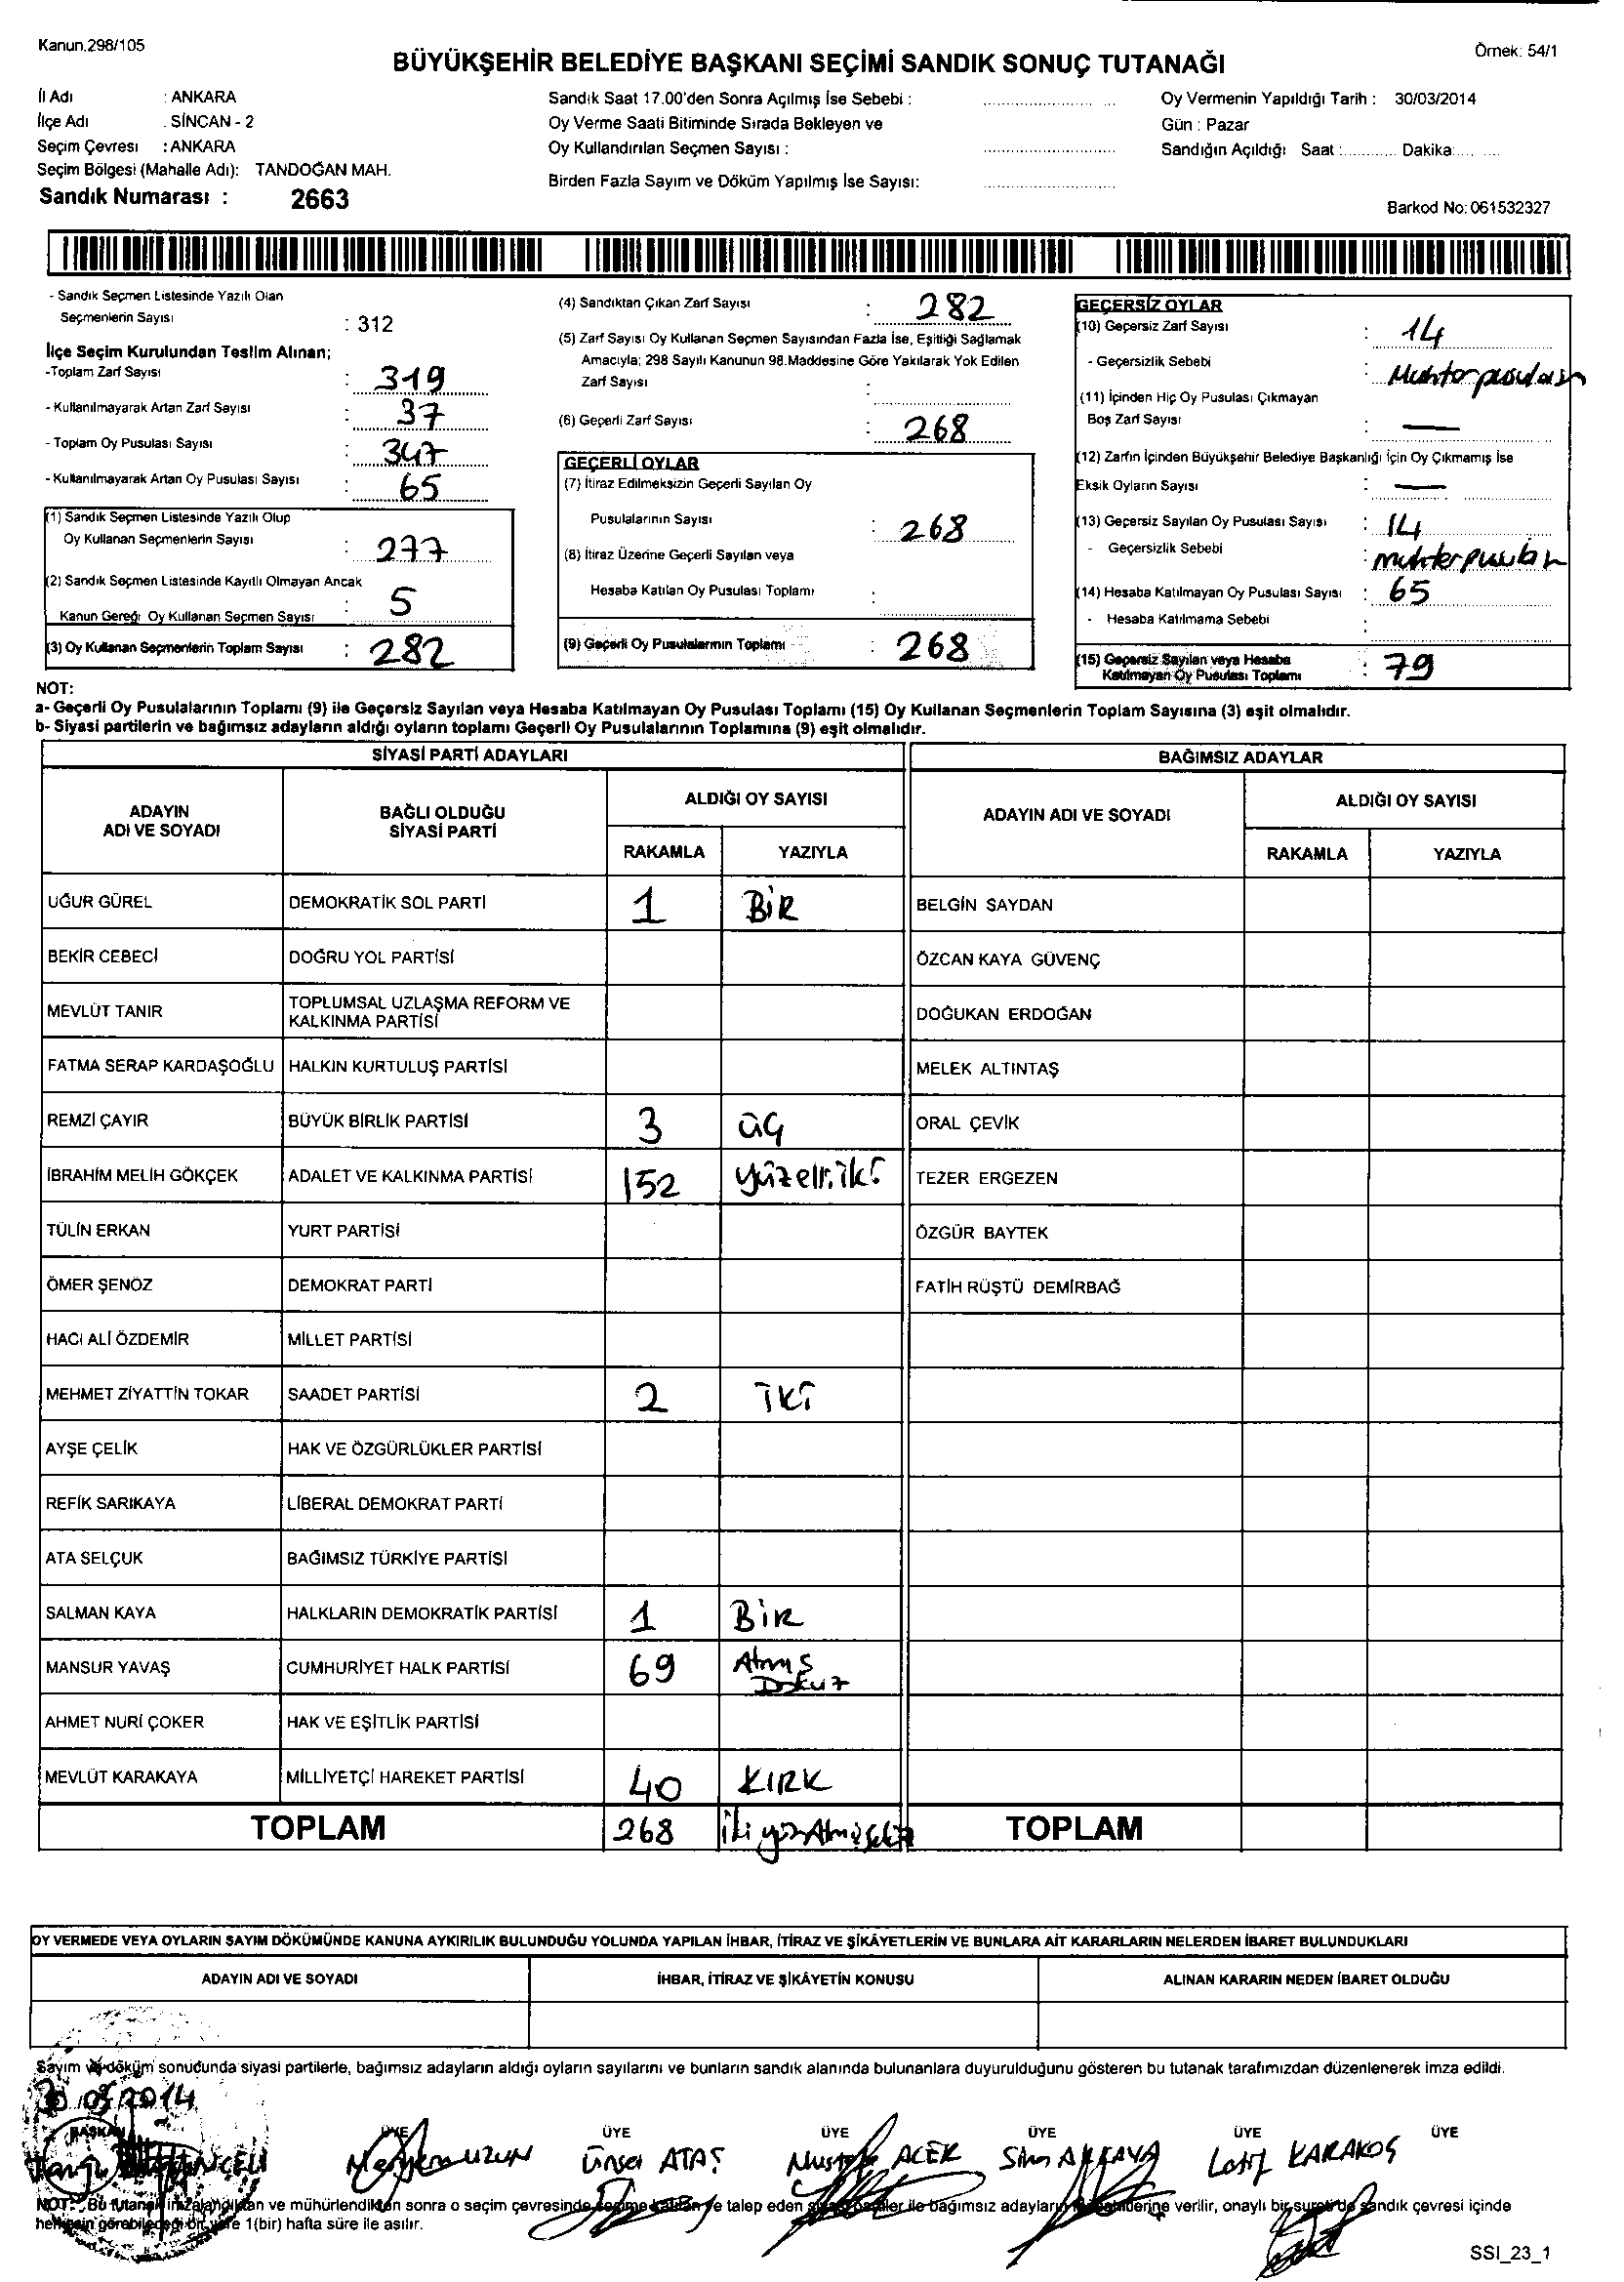 Kanun.298/105
Örnek: 54/1
BÜYÜKŞEHİR BELEDİYE BAŞKANI SEÇİMİ SANDIK SONUÇ TUTANAĞI
İl Adı : ANKARA
İlçe Adı : SİNCAN - 2
Seçim Çevresi : ANKARA
Seçim Bölgesi (Mahalle Adı): TANDOĞAN MAH.
Sandık Numarası : 2663
Sandık Saat 17.00'den Sonra Açılmış İse Sebebi :
Oy Verme Saati Bitiminde Sırada Bekleyen ve
Oy Kullandırılan Seçmen Sayısı :
Birden Fazla Sayım ve Döküm Yapılmış İse Sayısı:
Oy Vermenin Yapıldığı Tarih : 30/03/2014
Gün : Pazar
Sandığın Açıldığı Saat : Dakika:
Barkod No: 061532327
- Sandık Seçmen Listesinde Yazılı Olan
Seçmenlerin Sayısı : 312
İlçe Seçim Kurulundan Teslim Alınan;
-Toplam Zarf Sayısı : 319
- Kullanılmayarak Artan Zarf Sayısı : 37
- Toplam Oy Pusulası Sayısı : 347
- Kullanılmayarak Artan Oy Pusulası Sayısı : 65
(1) Sandık Seçmen Listesinde Yazılı Olup
Oy Kullanan Seçmenlerin Sayısı : 277
(2) Sandık Seçmen Listesinde Kayıtlı Olmayan Ancak
Kanun Gereği Oy Kullanan Seçmen Sayısı : 5
(3) Oy Kullanan Seçmenlerin Toplam Sayısı : 282
(4) Sandıktan Çıkan Zarf Sayısı : 282
(5) Zarf Sayısı Oy Kullanan Seçmen Sayısından Fazla İse, Eşitliği Sağlamak
Amacıyla; 298 Sayılı Kanunun 98.Maddesine Göre Yakılarak Yok Edilen
Zarf Sayısı :
(6) Geçerli Zarf Sayısı : 268
GEÇERLİ OYLAR
(7) İtiraz Edilmeksizin Geçerli Sayılan Oy
Pusulalarının Sayısı : 268
(8) İtiraz Üzerine Geçerli Sayılan veya
Hesaba Katılan Oy Pusulası Toplamı :
(9) Geçerli Oy Pusulalarının Toplamı : 268
GEÇERSİZ OYLAR
(10) Geçersiz Zarf Sayısı : 14
- Geçersizlik Sebebi : Muhtar pusulasın
(11) İçinden Hiç Oy Pusulası Çıkmayan
Boş Zarf Sayısı : —
(12) Zarfın İçinden Büyükşehir Belediye Başkanlığı İçin Oy Çıkmamış İse
Eksik Oyların Sayısı : —
(13) Geçersiz Sayılan Oy Pusulası Sayısı : 14
- Geçersizlik Sebebi :
(14) Hesaba Katılmayan Oy Pusulası Sayısı : 65
- Hesaba Katılmama Sebebi :
(15) Geçersiz Sayılan veya Hesaba
Katılmayan Oy Pusulası Toplamı : 79
NOT:
a- Geçerli Oy Pusulalarının Toplamı (9) ile Geçersiz Sayılan veya Hesaba Katılmayan Oy Pusulası Toplamı (15) Oy Kullanan Seçmenlerin Toplam Sayısına (3) eşit olmalıdır.
b- Siyasi partilerin ve bağımsız adayların aldığı oyların toplamı Geçerli Oy Pusulalarının Toplamına (9) eşit olmalıdır.
SİYASİ PARTİ ADAYLARI
BAĞIMSIZ ADAYLAR
ADAYIN ADI VE SOYADI
BAĞLI OLDUĞU SİYASİ PARTİ
ALDIĞI OY SAYISI
RAKAMLA YAZIYLA
ADAYIN ADI VE SOYADI
ALDIĞI OY SAYISI
RAKAMLA YAZIYLA
UĞUR GÜREL DEMOKRATİK SOL PARTİ 1 BİR BELGİN SAYDAN
BEKİR CEBECİ DOĞRU YOL PARTİSİ ÖZCAN KAYA GÜVENÇ
MEVLÜT TANIR TOPLUMSAL UZLAŞMA REFORM VE KALKINMA PARTİSİ DOĞUKAN ERDOĞAN
FATMA SERAP KARDAŞOĞLU HALKIN KURTULUŞ PARTİSİ MELEK ALTINTAŞ
REMZİ ÇAYIR BÜYÜK BİRLİK PARTİSİ 3 üÇ ORAL ÇEVİK
İBRAHİM MELİH GÖKÇEK ADALET VE KALKINMA PARTİSİ 152 yüzelli iki TEZER ERGEZEN
TÜLİN ERKAN YURT PARTİSİ ÖZGÜR BAYTEK
ÖMER ŞENÖZ DEMOKRAT PARTİ FATİH RÜŞTÜ DEMİRBAĞ
HACI ALİ ÖZDEMİR MİLLET PARTİSİ
MEHMET ZİYATTİN TOKAR SAADET PARTİSİ 2 İKİ
AYŞE ÇELİK HAK VE ÖZGÜRLÜKLER PARTİSİ
REFİK SARIKAYA LİBERAL DEMOKRAT PARTİ
ATA SELÇUK BAĞIMSIZ TÜRKİYE PARTİSİ
SALMAN KAYA HALKLARIN DEMOKRATİK PARTİSİ 1 BİR
MANSUR YAVAŞ CUMHURİYET HALK PARTİSİ 69 Atmış Dokuz
AHMET NURİ ÇOKER HAK VE EŞİTLİK PARTİSİ
MEVLÜT KARAKAYA MİLLİYETÇİ HAREKET PARTİSİ 40 KIRK
TOPLAM 268 iki yüz Atmışsekiz TOPLAM
OY VERMEDE VEYA OYLARIN SAYIM DÖKÜMÜNDE KANUNA AYKIRILIK BULUNDUĞU YOLUNDA YAPILAN İHBAR, İTİRAZ VE ŞİKÂYETLERİN VE BUNLARA AİT KARARLARIN NELERDEN İBARET BULUNDUKLARI
ADAYIN ADI VE SOYADI İHBAR, İTİRAZ VE ŞİKÂYETİN KONUSU ALINAN KARARIN NEDEN İBARET OLDUĞU
Sayım ve döküm sonucunda siyasi partilerle, bağımsız adayların aldığı oyların sayılarını ve bunların sandık alanında bulunanlara duyurulduğunu gösteren bu tutanak tarafımızdan düzenlenerek imza edildi.
30/03/2014
BAŞKAN ÜYE ÜYE ÜYE ÜYE ÜYE ÜYE
UZUN Ünsal ATAŞ Mustafa ACEK Latif KARAKOŞ
NOT: Bu tutanak imzalandıktan ve mühürlendikten sonra o seçim çevresinde seçime katılan ve talep eden siyasi partiler ile bağımsız adayların müşahitlerine verilir, onaylı bir sureti de sandık çevresi içinde
herkesin görebileceği bir yere 1(bir) hafta süre ile asılır.
SSI_23_1